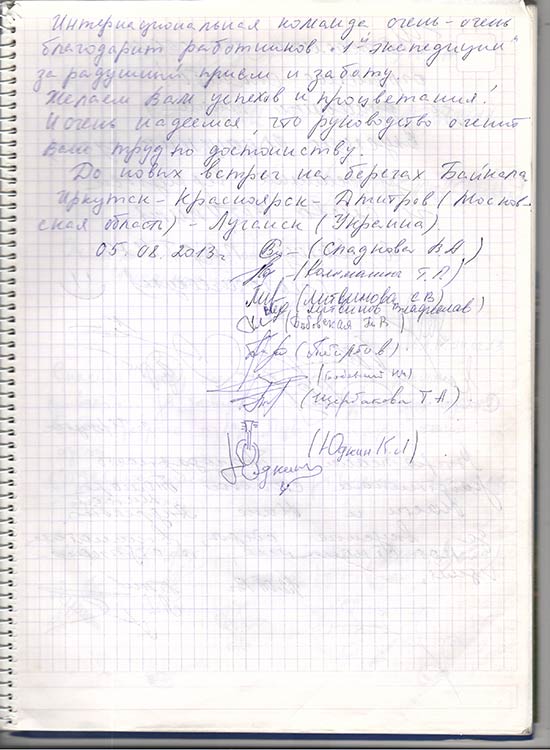 Интернациональная команда очень-очень
благодарит работников „1-й экспедиции"
за радушный приём и заботу.
Желаем Вам успехов и процветания!
И очень надеемся, что руководство оценит
Ваш труд по достоинству.
До новых встреч на берегах Байкала
Иркутск - Красноярск - Дмитров (Москов-
ская область) - Луганск (Украина)
05.08.2013г. (Сладкова
Т.Р.)
(Литвинова С.В)
(Литвинов Владислав)
(Бабовская
(Щербакова Т.А.)
(Юдкин К.Л)
Юдкин